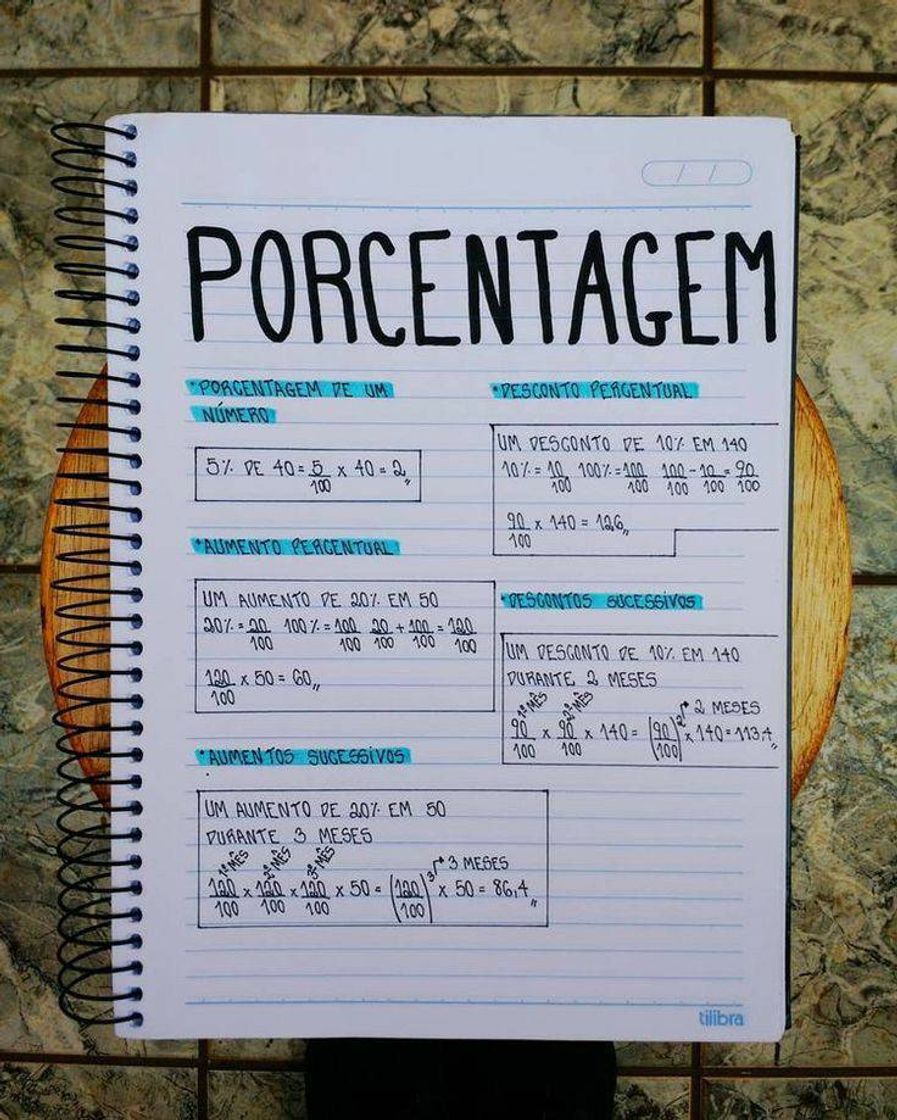 PORCENTAGEM
•PORCENTAGEM DE UM
NÚMERO
5% DE 40 = 5/100 x 40 = 2,,
•AUMENTO PERCENTUAL
UM AUMENTO DE 20% EM 50
20% = 20/100 100% = 100/100 20/100 + 100/100 = 120/100
120/100 x 50 = 60,,
•AUMENTOS SUCESSIVOS
UM AUMENTO DE 20% EM 50
DURANTE 3 MESES
1º MÊS 2º MÊS 3º MÊS 3 MESES
120/100 x 120/100 x 120/100 x 50 = (120/100)³ x 50 = 86,4,,
•DESCONTO PERCENTUAL
UM DESCONTO DE 10% EM 140
10% = 10/100 100% = 100/100 100/100 - 10/100 = 90/100
90/100 x 140 = 126,,
•DESCONTOS SUCESSIVOS
UM DESCONTO DE 10% EM 140
DURANTE 2 MESES
1º MÊS 2º MÊS 2 MESES
90/100 x 90/100 x 140 = (90/100)² x 140 = 113,4,,
tilibra